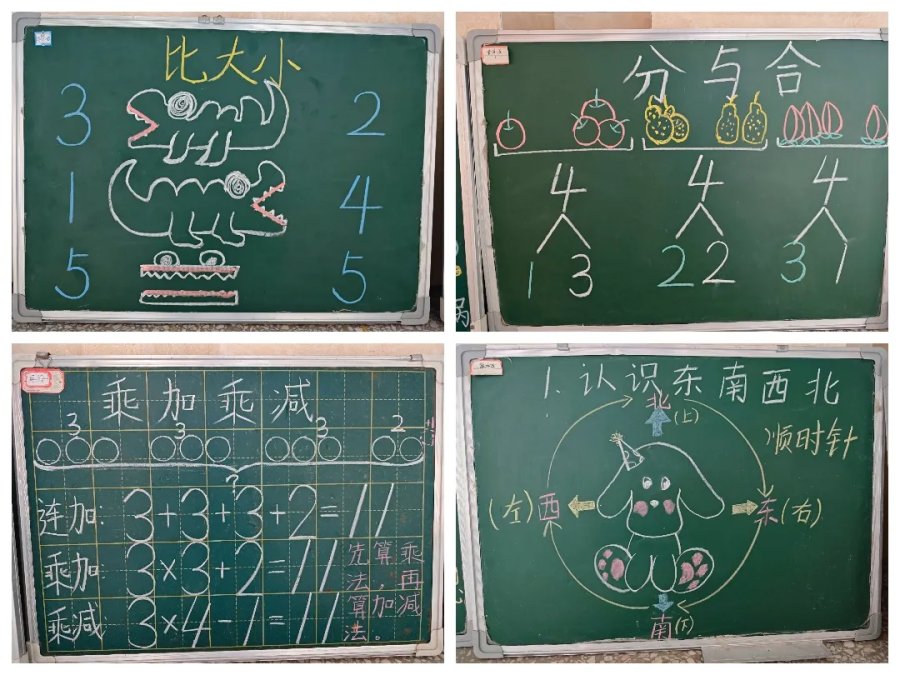 比大小
3 2
1 4
5 5
分与合
4 4 4
1 3 2 2 3 1
乘加乘减
3 3 3 2
?
连加: 3+3+3+2=11
乘加 3×3+2=11
乘减 3×4-1=11
先算乘
法,再
算加减
法。
1.认识东南西北
北(上)
顺时针
(左)西 东(右)
南(下)